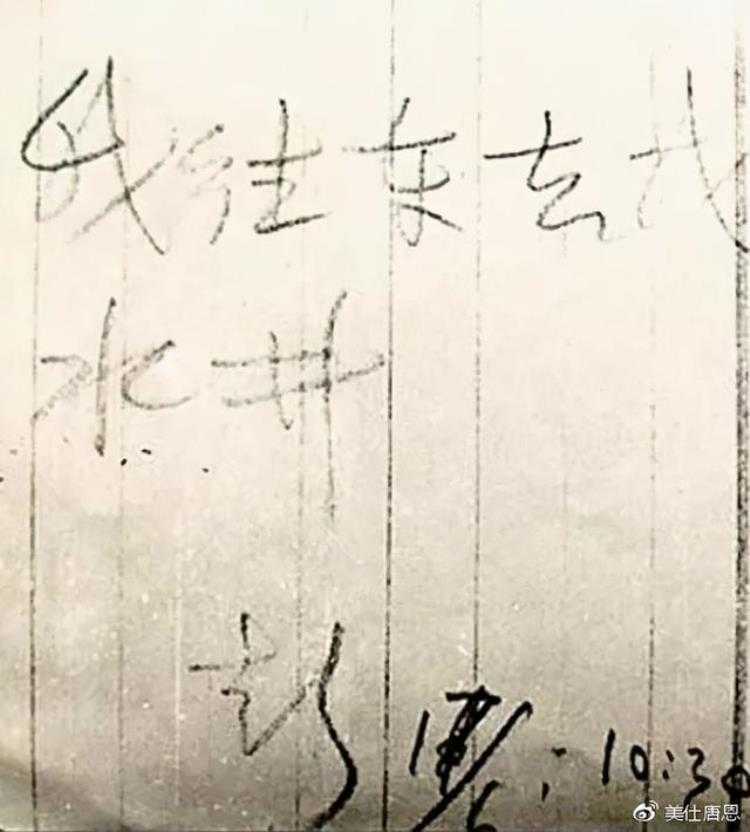 我往东去找
水井
彭
/6: 10:30
美仕唐恩